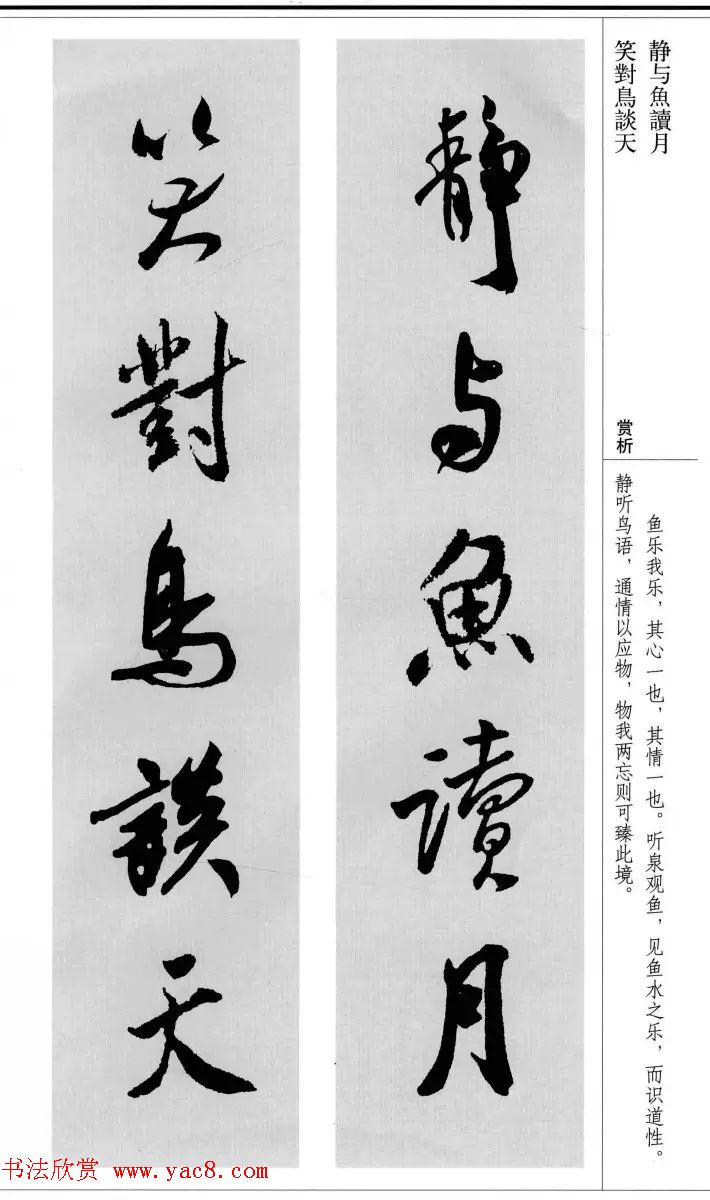 静与魚讀月
笑對鳥談天
赏析
鱼乐我乐，其心一也，其情一也。听泉观鱼，见鱼水之乐，而识道性。
静听鸟语，通情以应物，物我两忘则可臻此境。
静与魚讀月
笑對鳥談天
书法欣赏 www.yac8.com